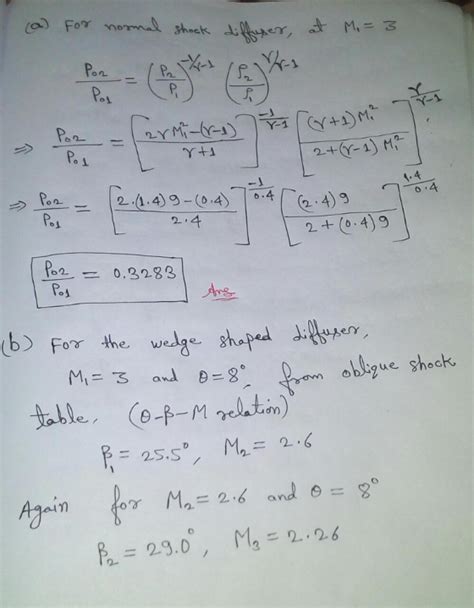 (a) For normal shock diffuser, at M₁ = 3
P₀₂/P₀₁ = (P₂/P₁)^(-1/γ-1) (ρ₂/ρ₁)^(γ/γ-1)
⇒ P₀₂/P₀₁ = [2γM₁²-(γ-1)/γ+1]^(-1/γ-1) [(γ+1)M₁²/2+(γ-1)M₁²]^(γ/γ-1)
⇒ P₀₂/P₀₁ = [2·(1.4)9-(0.4)/2.4]^(-1/0.4) [(2.4)9/2+(0.4)9]^(1.4/0.4)
P₀₂/P₀₁ = 0.3283 Ans
(b) For the wedge shaped diffuser,
M₁ = 3 and θ = 8°, from oblique shock
table, (θ-β-M relation)
β₁ = 25.5°, M₂ = 2.6
Again for M₂ = 2.6 and θ = 8°
β₂ = 29.0°, M₃ = 2.26